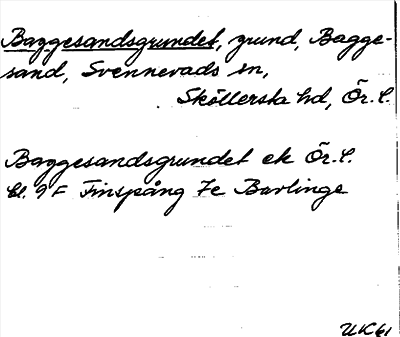 Baggesandsgrundet, grund, Bagge-
sand, Svennevads sn,
Sköllersta hd, Ör. l.
Baggesandsgrundet ek Ör. l.
bl. 9 F Finspång 7e Barlinge
UK 61